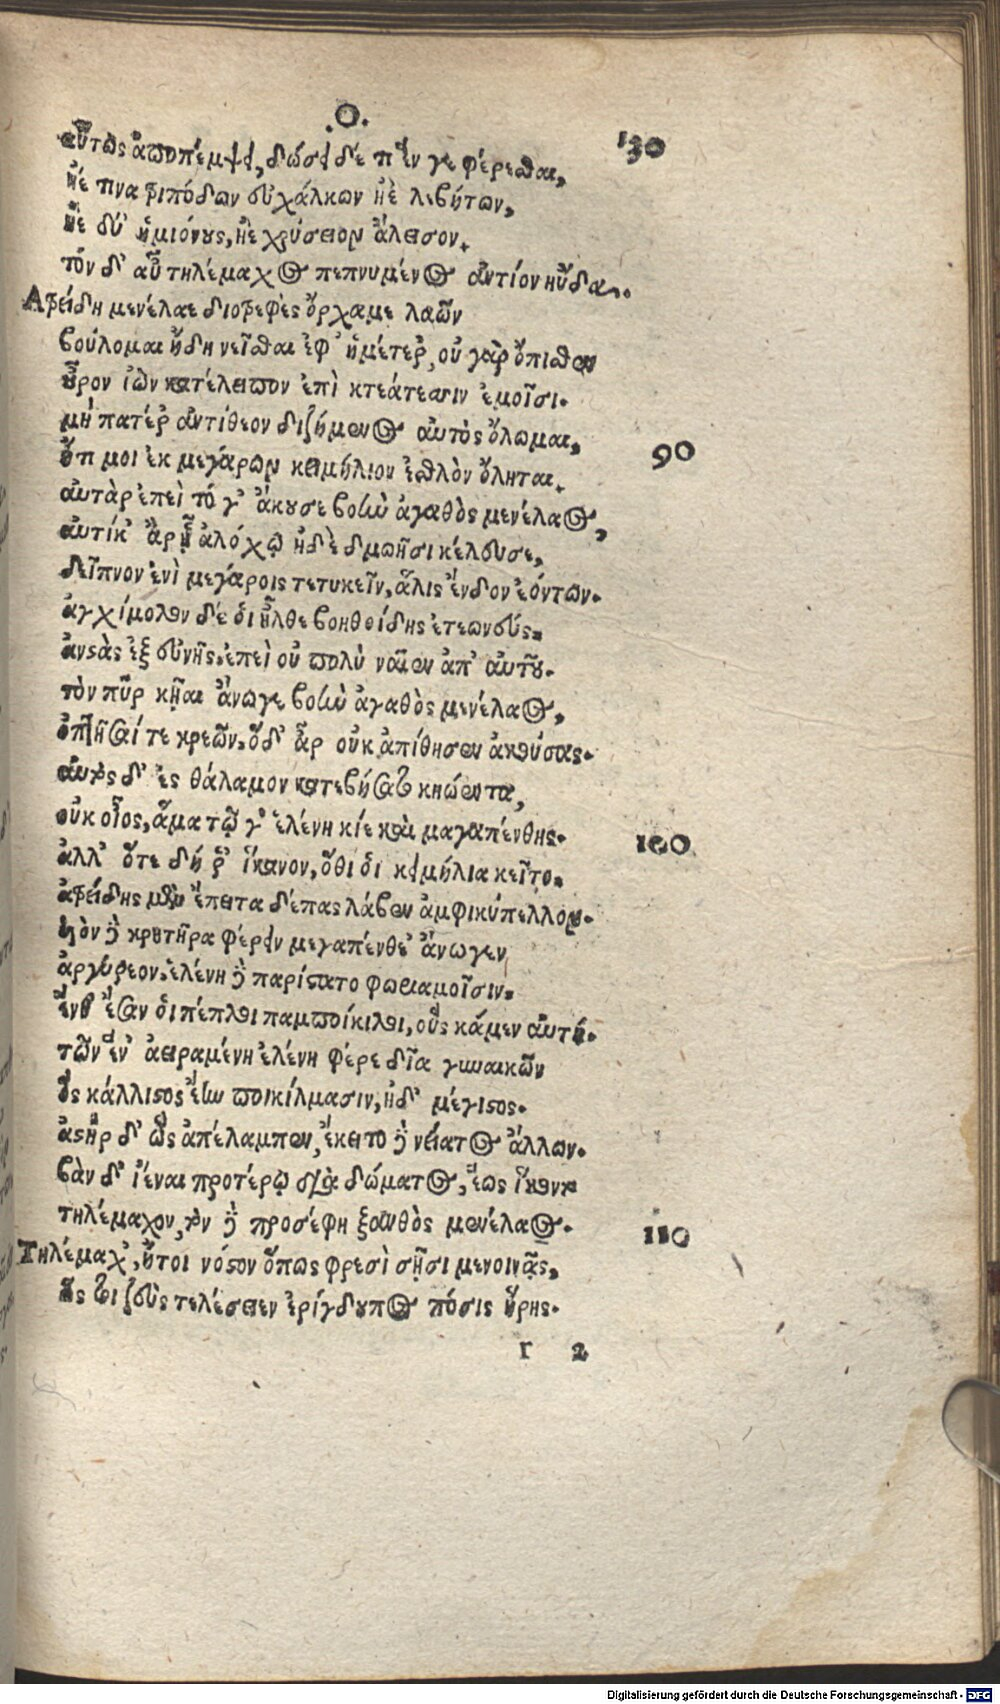 .Ο.
130
αὔτως ἀποπέμψει, δώσει δέ τι ἕν γε φέρεσθαι,
ἠέ τινα τριπόδων εὐχάλκων ἠὲ λεβήτων,
ἠὲ δύ' ἡμιόνους, ἠὲ χρύσειον ἄλεισον.
τὸν δ' αὖ τηλέμαχος πεπνυμένος ἀντίον ηὔδα.
Ἀτρείδη μενέλαε διοτρεφὲς ὄρχαμε λαῶν
βούλομαι ἤδη νεῖσθαι ἐφ' ἡμέτερ, οὐ γὰρ ὄπισθεν
οὖρον ἰὼν κατέλειπον ἐπὶ κτεάτεσσιν ἐμοῖσι.
μὴ πατέρ ἀντίθεον διζήμενος αὐτὸς ὄλωμαι,
90
ὄτι μοι ἐκ μεγάρων κειμήλιον ἐσθλὸν ὄληται.
αὐτὰρ ἐπεὶ τό γ' ἄκουσε βοὴν ἀγαθὸς μενέλαος,
αὐτίκ' ἂρ ᾗ ἀλόχῳ ἠδὲ δμωῇσι κέλευσε,
δεῖπνον ἐνὶ μεγάροις τετυκεῖν, ἅλις ἔνδον ἐόντων.
ἀγχίμολον δέ δι ἦλθε βοηθοίδης ἐτεωνεύς.
ἀνστὰς ἐξ εὐνῆς. ἐπεὶ οὐ πολὺ ναῖεν ἀπ' αὐτοῦ.
τὸν πῦρ κῆαι ἄνωγε βοὴν ἀγαθὸς μενέλαος,
ὀπτῆσαί τε κρεῶν. ὅδ' ἂρ οὐκ ἀπίθησεν ἀκούσας.
αὐτὸς δ' ἐς θάλαμον κατεβήσατο κηώεντα,
οὐκ οἶος, ἅμα τῷ γ' ἑλένη κίε καὶ μαγαπένθης.
100
ἀλλ' ὅτε δή ῥ' ἵκανον, ὅθι δι κειμήλια κεῖτο.
ἀτρείδης μὲν ἔπειτα δέπας λάβεν ἀμφικύπελλον.
υἱὸν δὲ κρητῆρα φέρειν μεγαπένθε' ἄνωγεν
ἀργύρεον. ἑλένη δὲ παρίστατο φωριαμοῖσιν.
ἔνθ' ἔσαν δι πέπλοι παμποίκιλοι, οὓς κάμεν αὐτή.
τῶν ἕν' ἀειραμένη ἑλένη φέρε δῖα γυναικῶν
ὃς κάλλιστος ἔην ποικίλμασιν, ἠδ' μέγιστος.
ἀστὴρ δ' ὣς ἀπέλαμπεν, ἔκειτο δὲ νείατος ἄλλων.
βὰν δ' ἰέναι προτέρῳ διὰ δώματος, ἕως ἵκοντο
τηλέμαχον, τὸν δὲ προσέφη ξανθὸς μενέλαος.
110
Τηλέμαχ', ἤτοι νόστον ὅπως φρεσὶ σῇσι μενοινᾷς,
ὣς τοι ζεὺς τελέσειεν ἐρίγδουπος πόσις ἥρης.
r 2
Digitalisierung gefördert durch die Deutsche Forschungsgemeinschaft - DFG